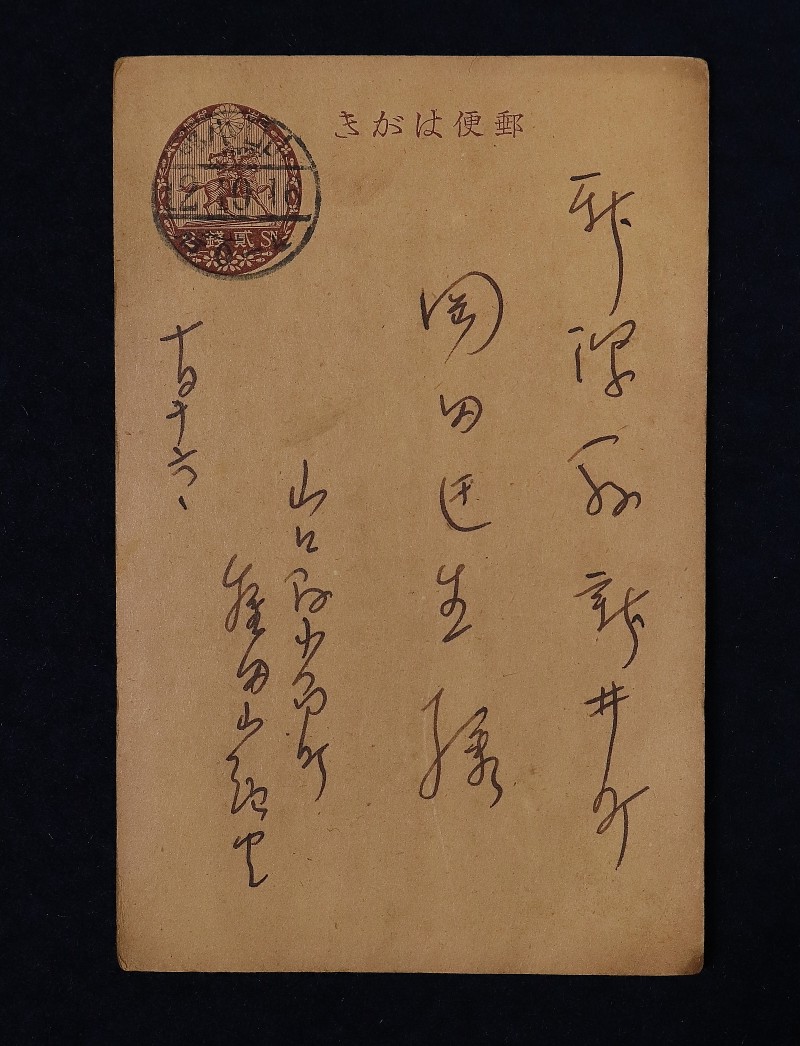 郵便はがき
貳錢
12.10.16
新潟縣新井町
岡田匡生様
山口縣小郡町
種田山頭火
十月十六、